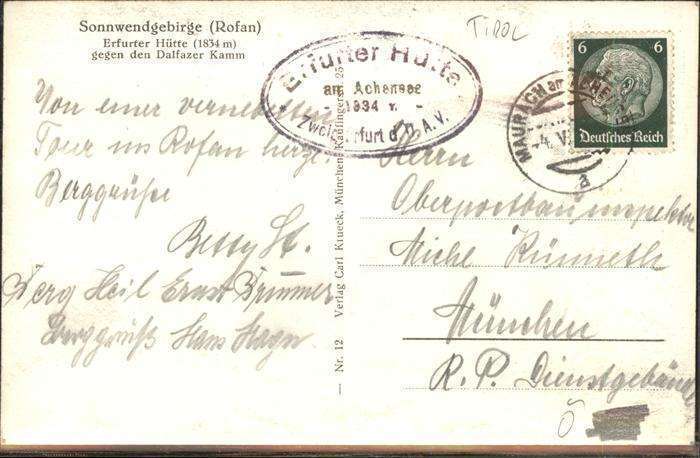 Sonnwendgebirge (Rofan)
Erfurter Hütte (1834 m)
gegen den Dalfazer Kamm
TIROL
Erfurter Hütte
am Achensee
- 1834 m. -
Zweig Erfurt d. D. A. V.
6 6
Deutsches Reich
MAURACH am
-4. V
a
Von einer
Tour ins Rofan
Berggrüße
Betty St.
Berg Heil Ernst Brummer
Berggrüß Hans
— Nr. 12 Verlag Carl Krueck, München, Kaufingerstr. 25
Herrn
Oberpostbauinspektor
Michl Künneth
München
R. P. Dienstgebäude
Ö